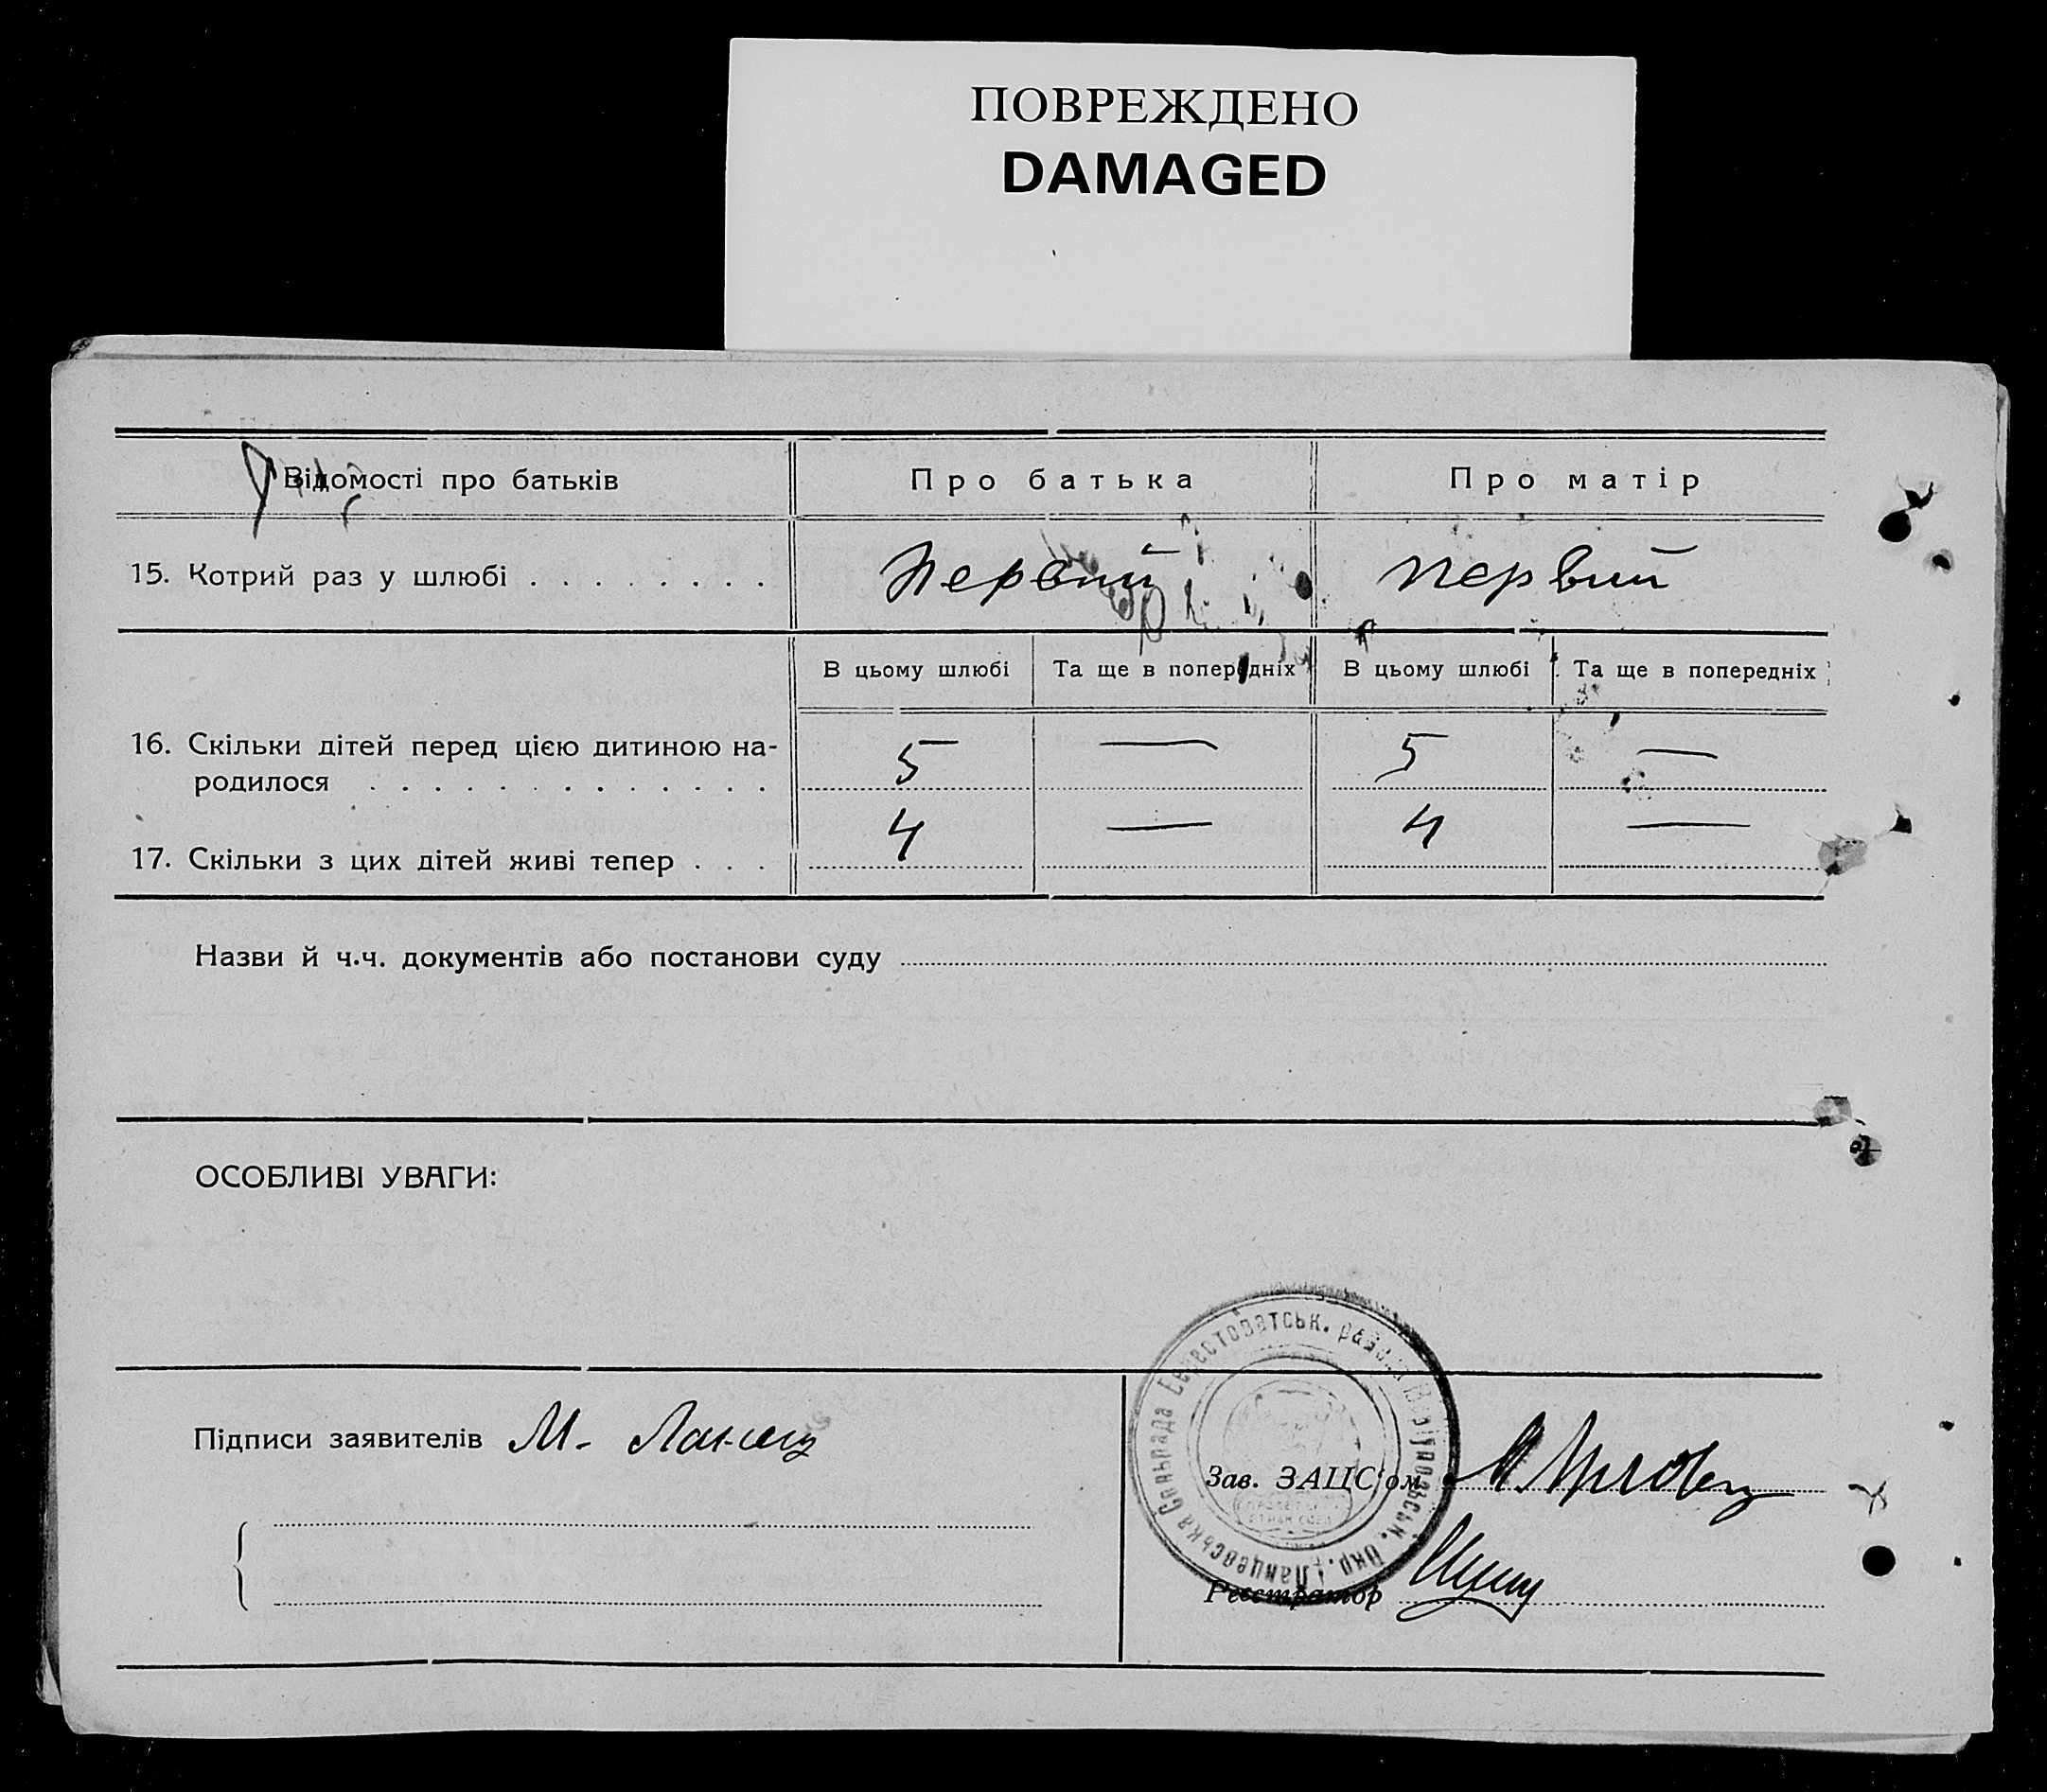 ПОВРЕЖДЕНО
DAMAGED
Відомості про батьків
Про батька
Про матір
15. Котрий раз у шлюбі . . . . . . . .
Первий
первий
В цьому шлюбі
Та ще в попередніх
В цьому шлюбі
Та ще в попередніх
16. Скільки дітей перед цією дитиною на-
родилося . . . . . . . . . . . . .
5 — 5 —
17. Скільки з цих дітей живі тепер . . .
4 — 4 —
Назви й ч.ч. документів або постанови суду
ОСОБЛИВІ УВАГИ:
Підписи заявителів М.
Зав. ЗАЦС'ом
Реєстратор
Сільрада